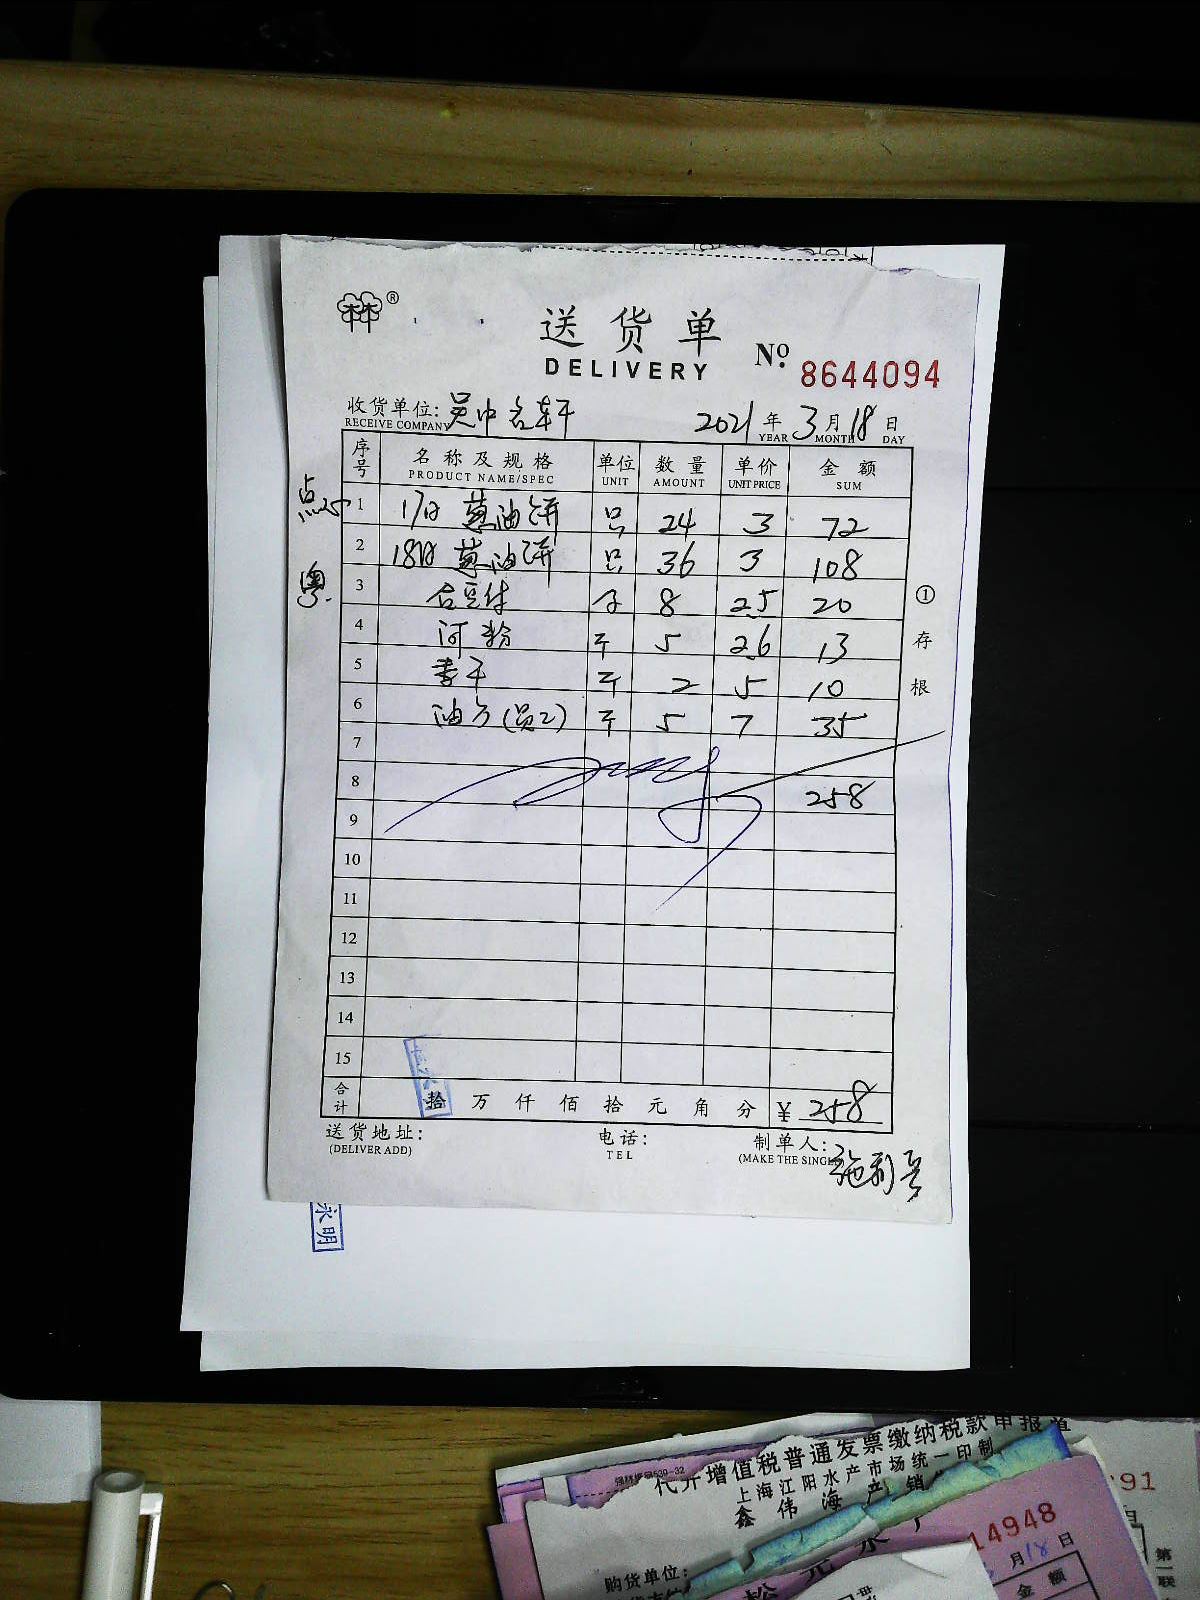 ®
送货单
DELIVERY
№ 8644094
收货单位: 吴中名轩
RECEIVE COMPANY
2021年3月18日
YEAR MONTH DAY
序号 名称及规格 单位 数量 单价 金额
PRODUCT NAME/SPEC UNIT AMOUNT UNIT PRICE SUM
点心 1 17日 葱油饼 只 24 3 72
2 18日 葱油饼 只 36 3 108
粤 3 8 2.5 20
4 河粉 斤 5 2.6 13
5 斤 2 5 10
6 斤 5 7 35
7
8 258
9
10
11
12
13
14
15
合计 拾 万 仟 佰 拾 元 角 分 ¥ 258
送货地址: 电话: 制单人: 施利
(DELIVER ADD) TEL (MAKE THE SINGLE
①存根
永明
代开增值税普通发票缴纳税款申报
上海江阳水产市场统一印制
鑫伟海产销
购货单位:
14948
月18日
金额
91
第一联